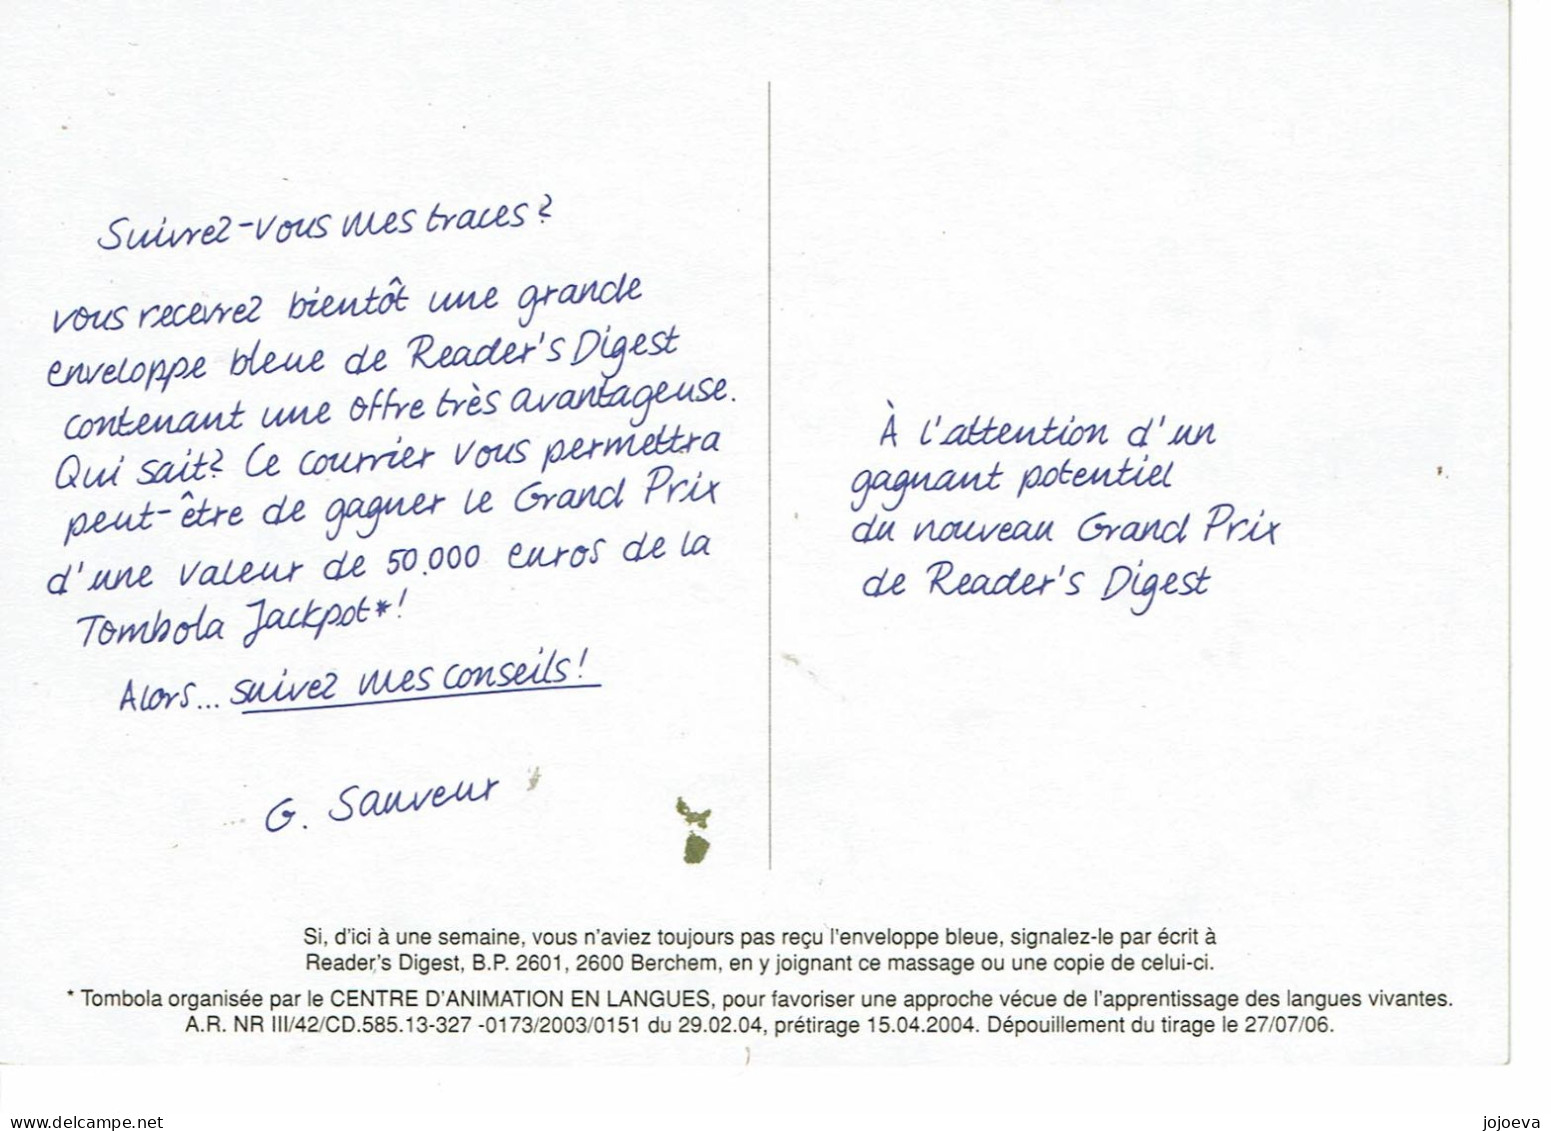 Suivrez-vous mes traces?
vous recevrez bientôt une grande
enveloppe bleue de Reader's Digest
contenant une offre très avantageuse.
Qui sait? Ce courrier vous permettra
peut-être de gagner le Grand Prix
d'une valeur de 50.000 euros de la
Tombola Jackpot*!
Alors... suivez mes conseils!
G. Sauveur
À l'attention d'un
gagnant potentiel
du nouveau Grand Prix
de Reader's Digest
Si, d'ici à une semaine, vous n'aviez toujours pas reçu l'enveloppe bleue, signalez-le par écrit à
Reader's Digest, B.P. 2601, 2600 Berchem, en y joignant ce massage ou une copie de celui-ci.
* Tombola organisée par le CENTRE D'ANIMATION EN LANGUES, pour favoriser une approche vécue de l'apprentissage des langues vivantes.
A.R. NR III/42/CD.585.13-327 -0173/2003/0151 du 29.02.04, prétirage 15.04.2004. Dépouillement du tirage le 27/07/06.
www.delcampe.net
jojoeva